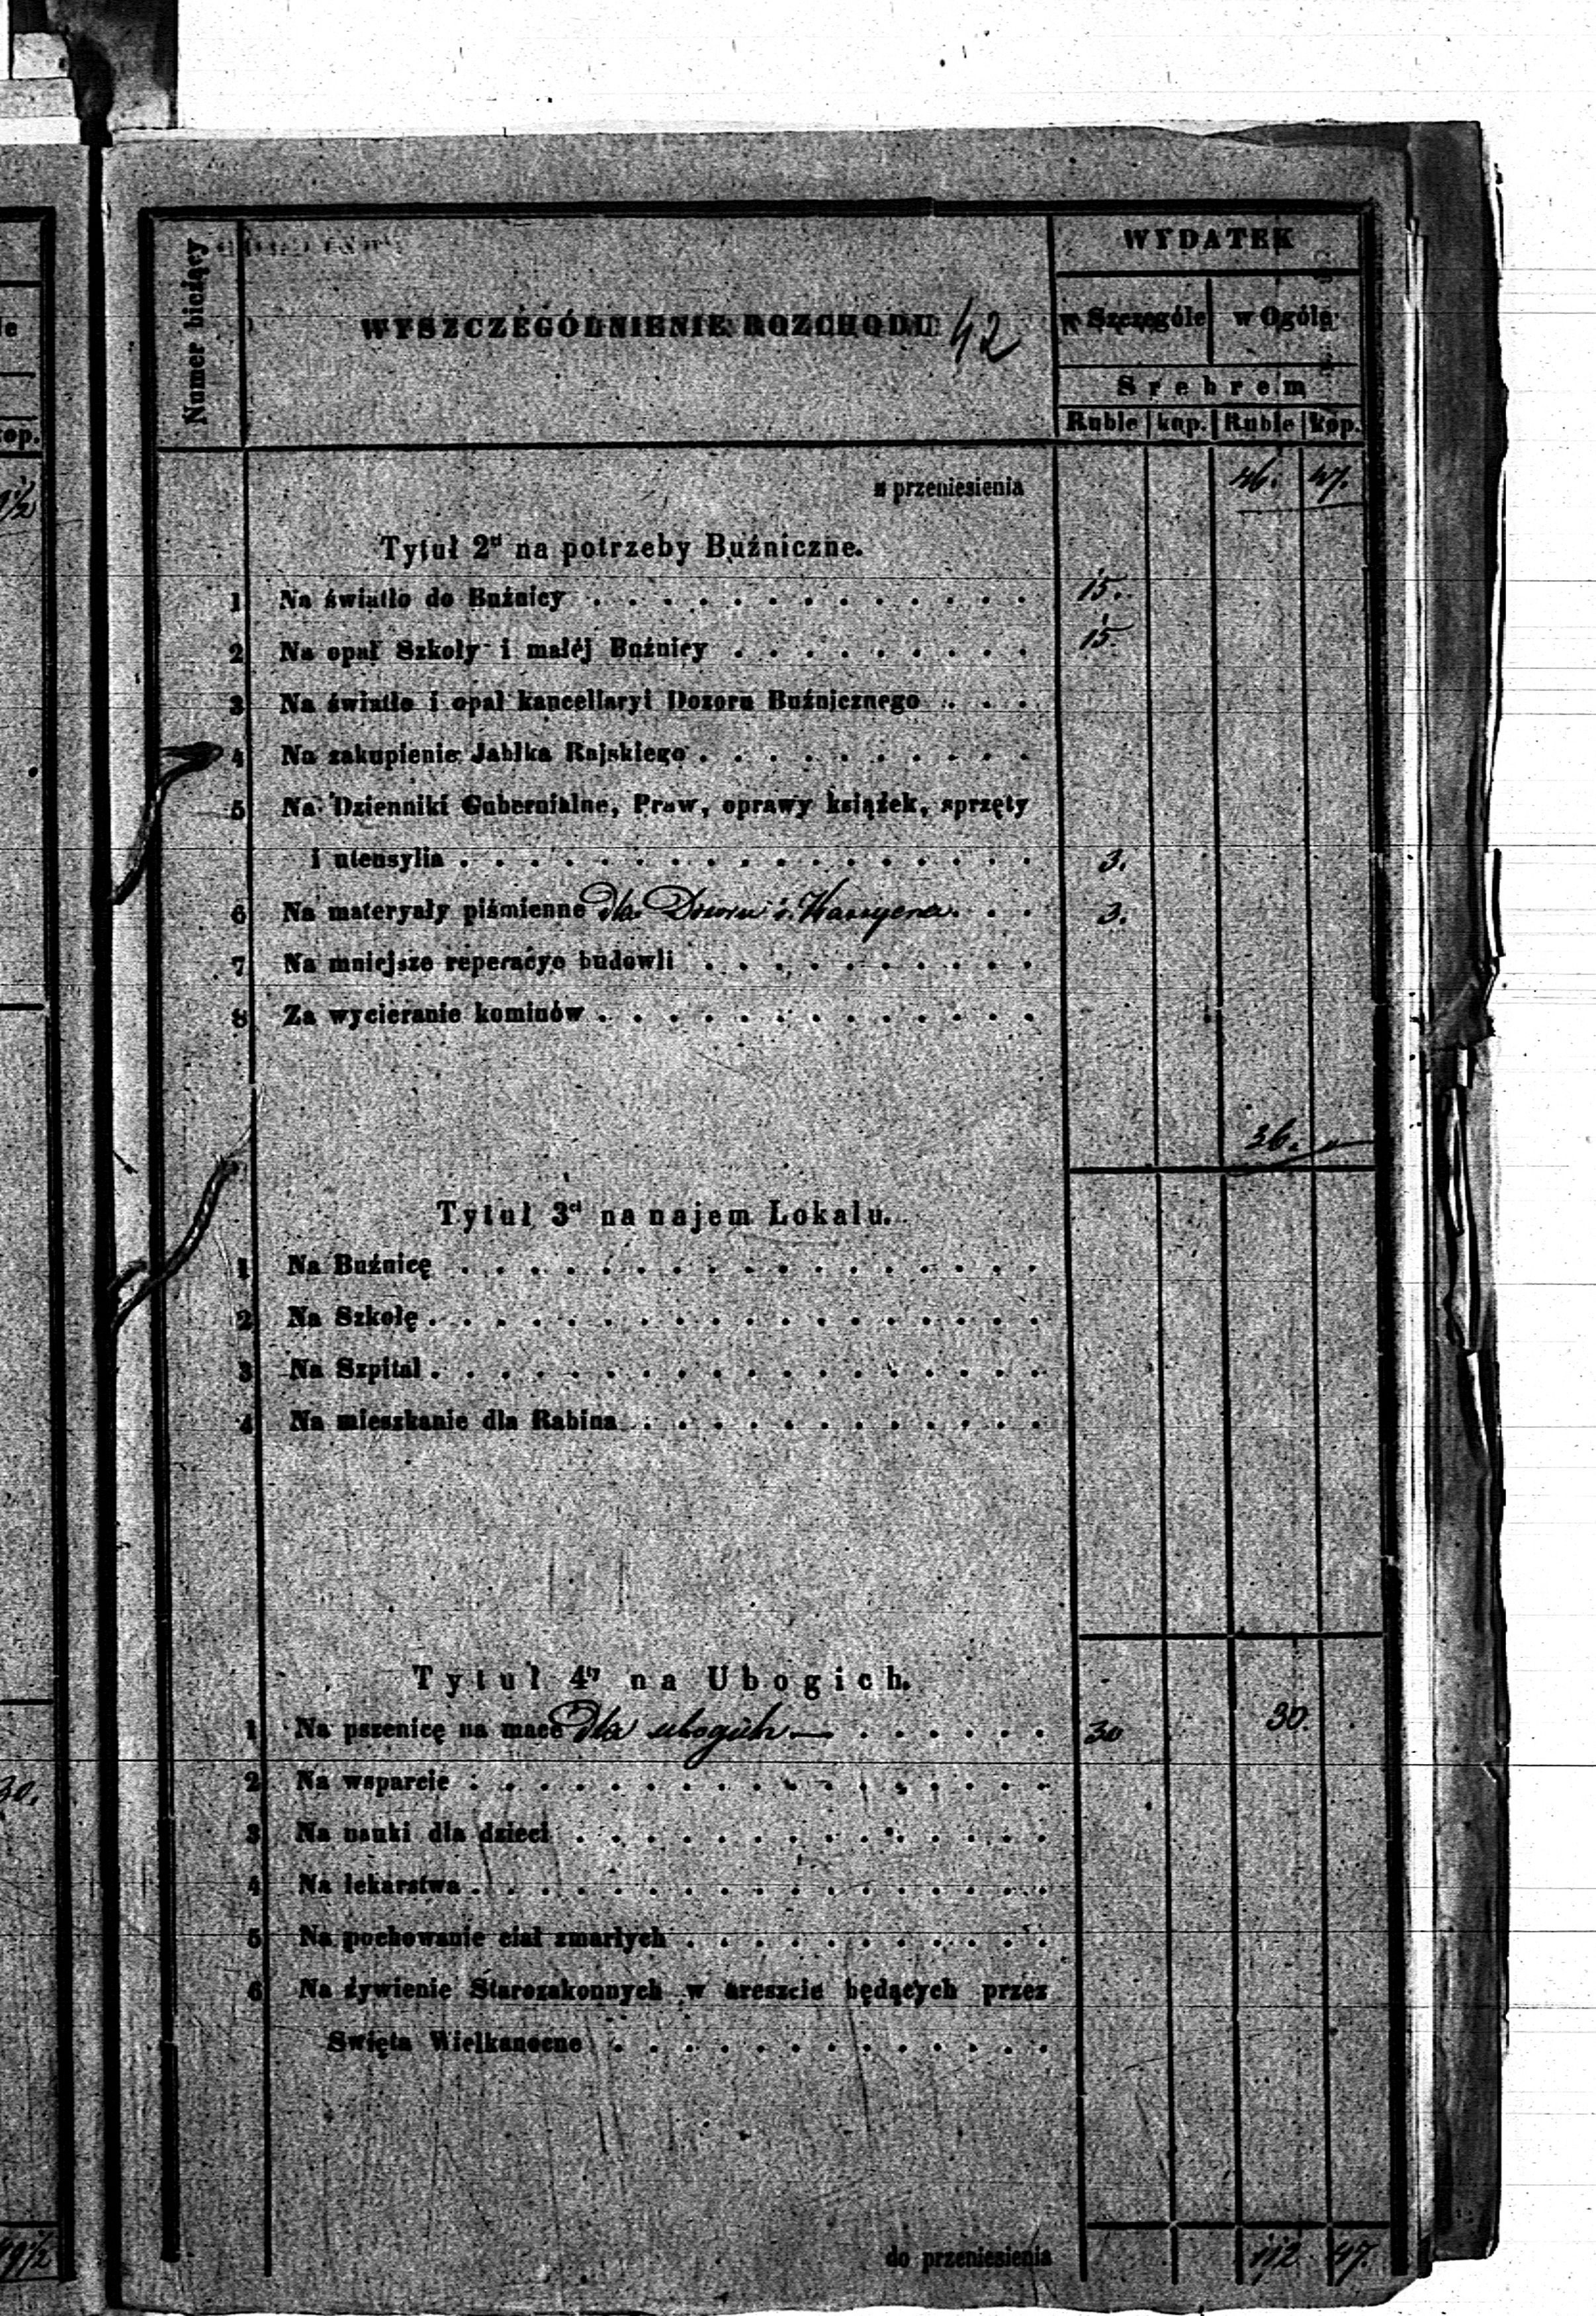 Numer bieżący
WYSZCZEGÓLNIENIE ROZCHODU 42
WYDATEK
w Szczególe w Ogóle
Srebrem
Ruble kop. Ruble kop.
z przeniesienia 46. 47.
Tytuł 2gi na potrzeby Buźniczne.
1 Na światło do Buźnicy 15.
2 Na opał Szkoły i małéj Buźnicy 15.
3 Na światło i opał kancellaryi Dozoru Buźnicznego
4 Na zakupienie Jabłka Rajskiego
5 Na Dzienniki Gubernialne, Praw, oprawy książek, sprzęty
i utensylia 3.
6 Na materyały piśmienne dla Dozoru i Kassyera 3.
7 Na mniejsze reperacye budowli
8 Za wycieranie kominów
36. „
Tytuł 3ci na najem Lokalu.
1 Na Buźnicę
2 Na Szkołę
3 Na Szpital
4 Na mieszkanie dla Rabina
Tytuł 4ty na Ubogich.
1 Na pszenicę na mace dla ubogich — 30 30.
2 Na wsparcie
3 Na nauki dla dzieci
4 Na lekarstwa
5 Na pochowanie ciał zmarłych
6 Na żywienie Starozakonnych w areszcie będących przez
Swięta Wielkanocne
do przeniesienia 112 47.